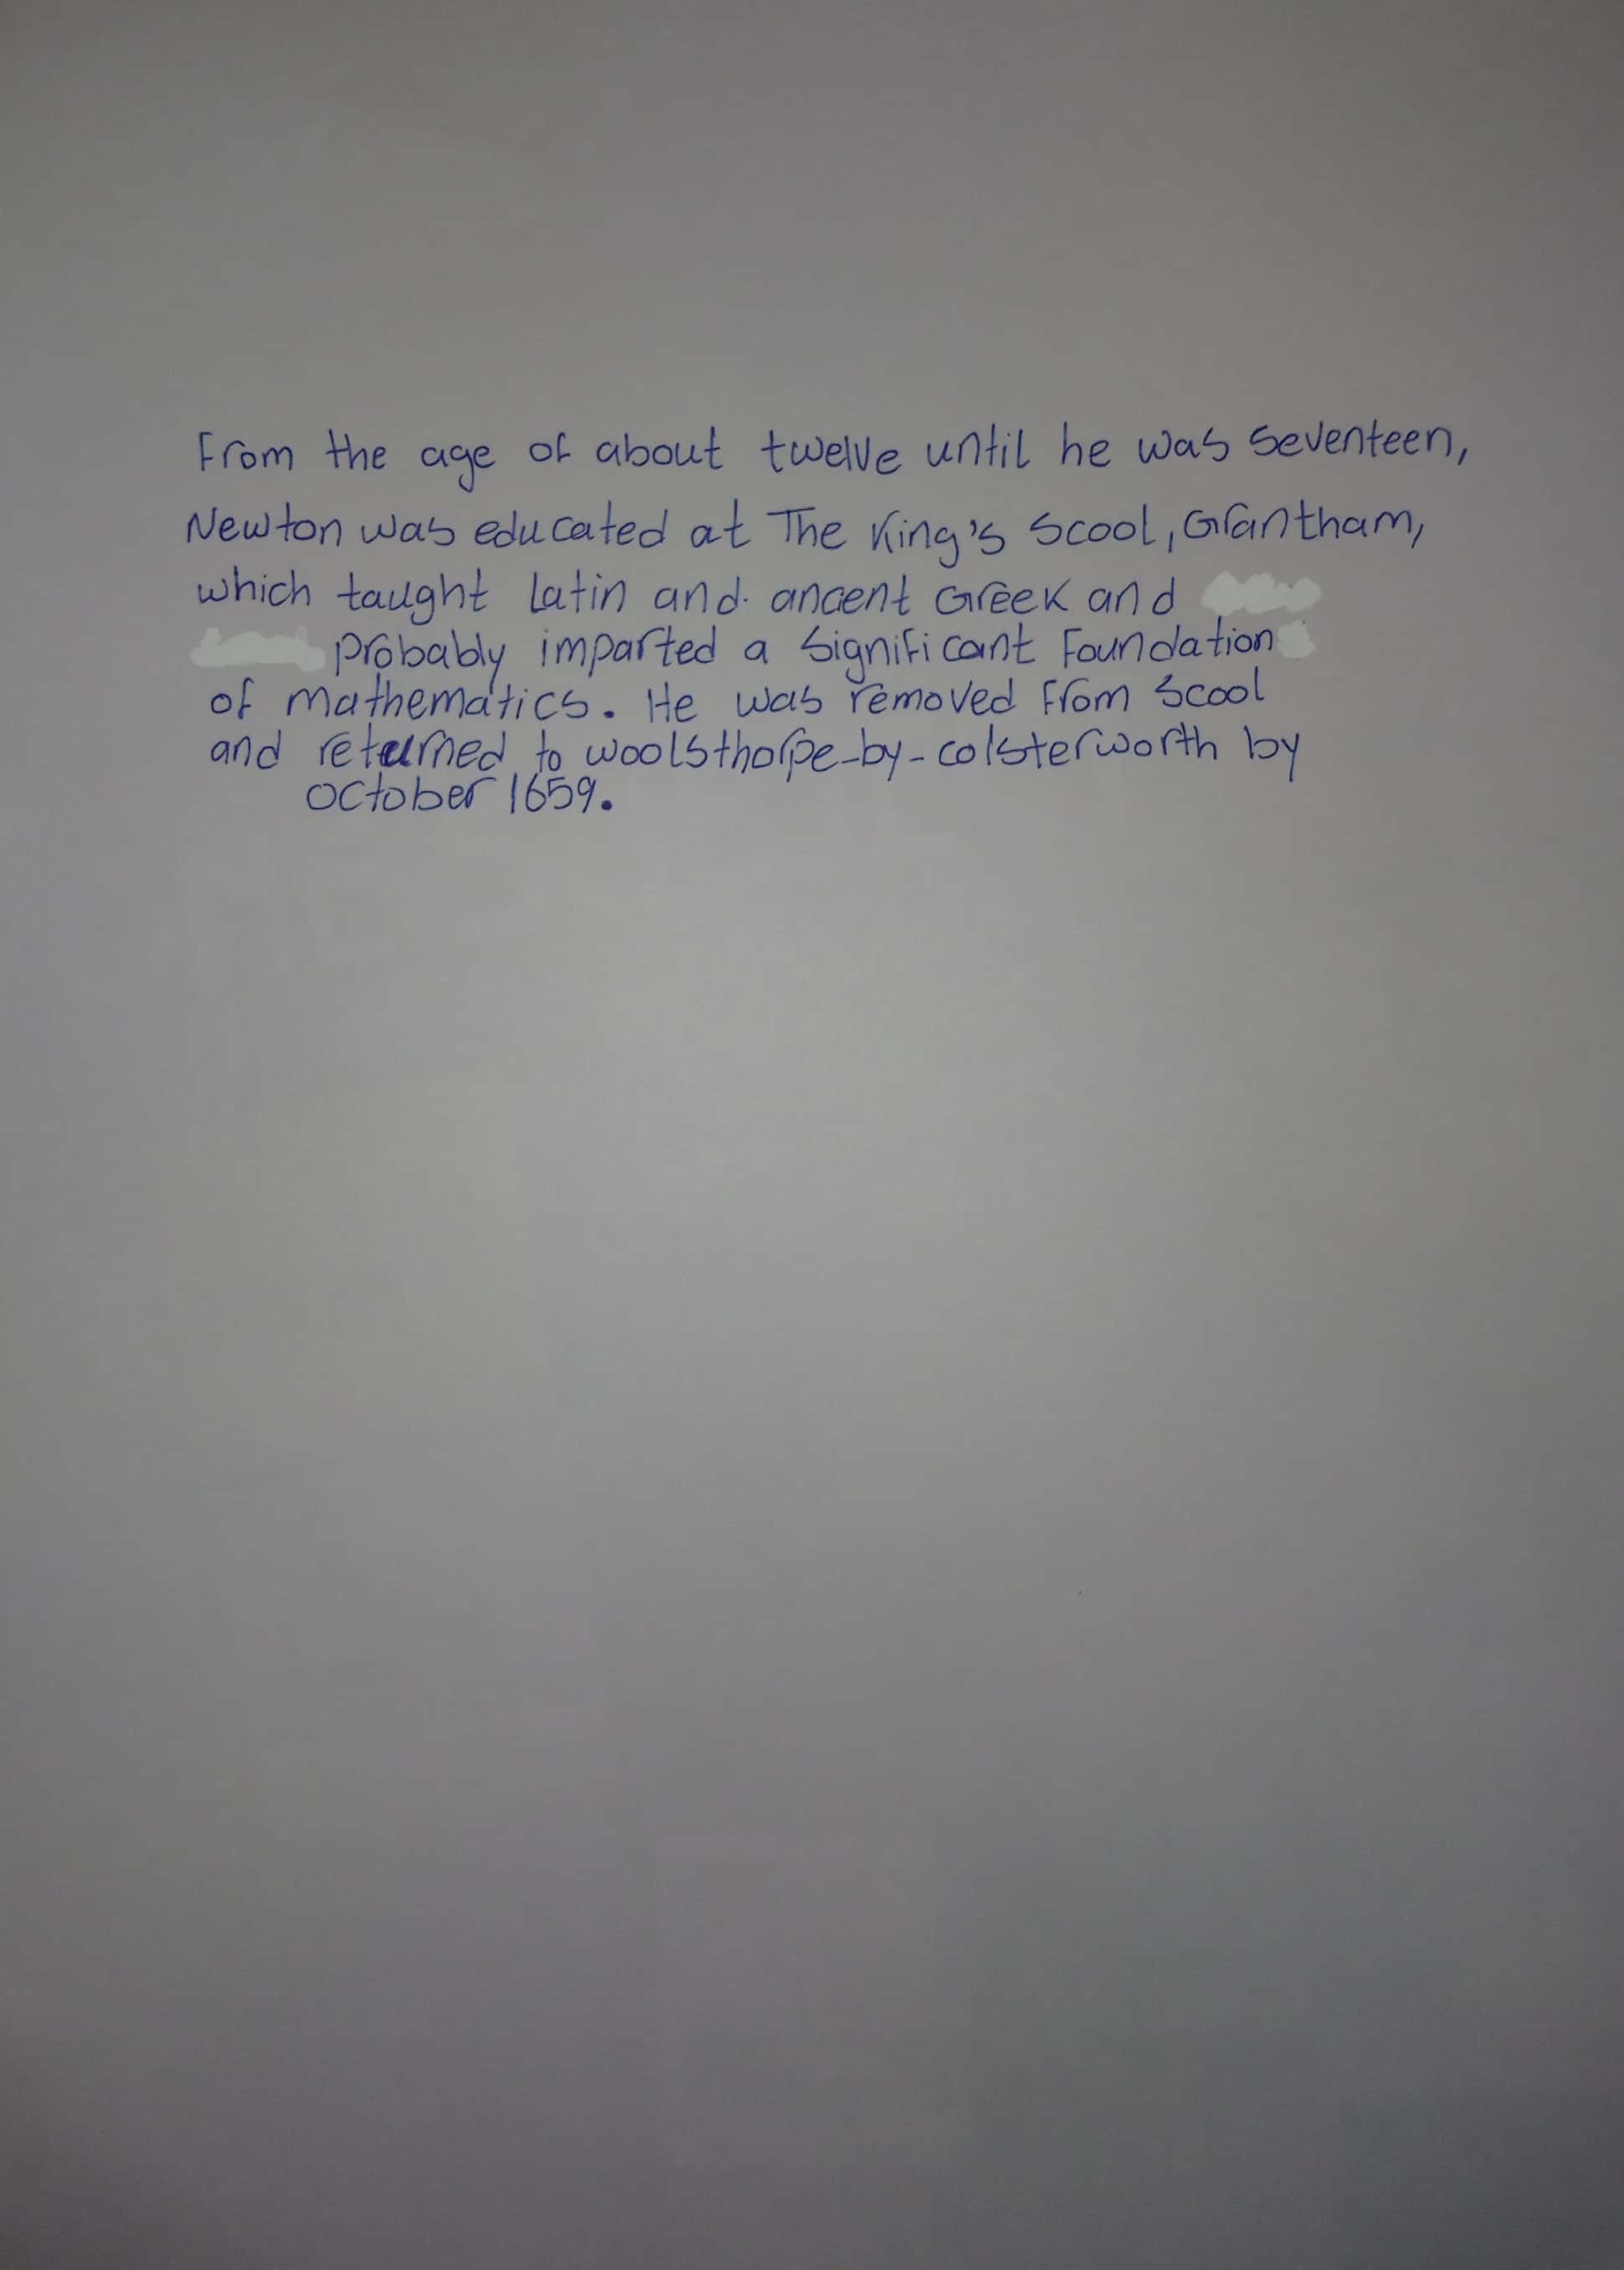 From the age of about twelve until he was seventeen,
Newton was educated at The King's Scool, Grantham,
which taught Latin and ancent Greek and
probably imparted a significant foundation
of mathematics. He was removed from scool
and returned to woolsthorpe-by-colsterworth by
october 1659.